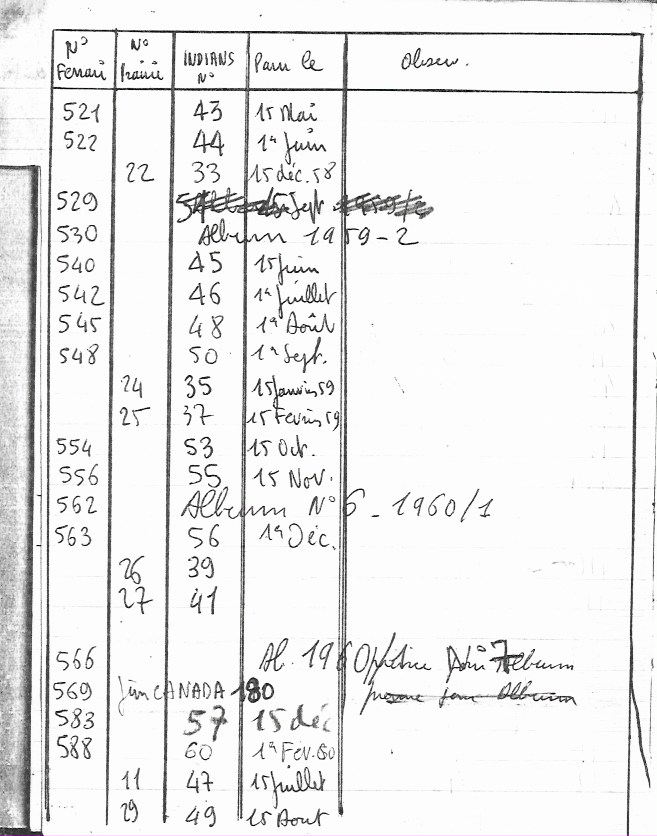 N° Ferrari N° Prairie INDIANS N° Paru le Observ.
521 43 15 Mai
522 44 1er Juin
22 33 15 déc. 58
529 15 Sept
530 Album 1959-2
540 45 15 Juin
542 46 1er Juillet
545 48 1er Août
548 50 1er Sept.
24 35 15 Janvier 59
25 37 15 Fevrier 59
554 53 15 Oct.
556 55 15 Nov.
562 Album N° 6 - 1960/1
563 56 1er Déc.
26 39
27 41
566 Al. 1960 Album
569 Jim CANADA 180 Album
583 57 15 déc
588 60 1er Fév. 60
11 47 15 Juillet
29 49 15 Aout